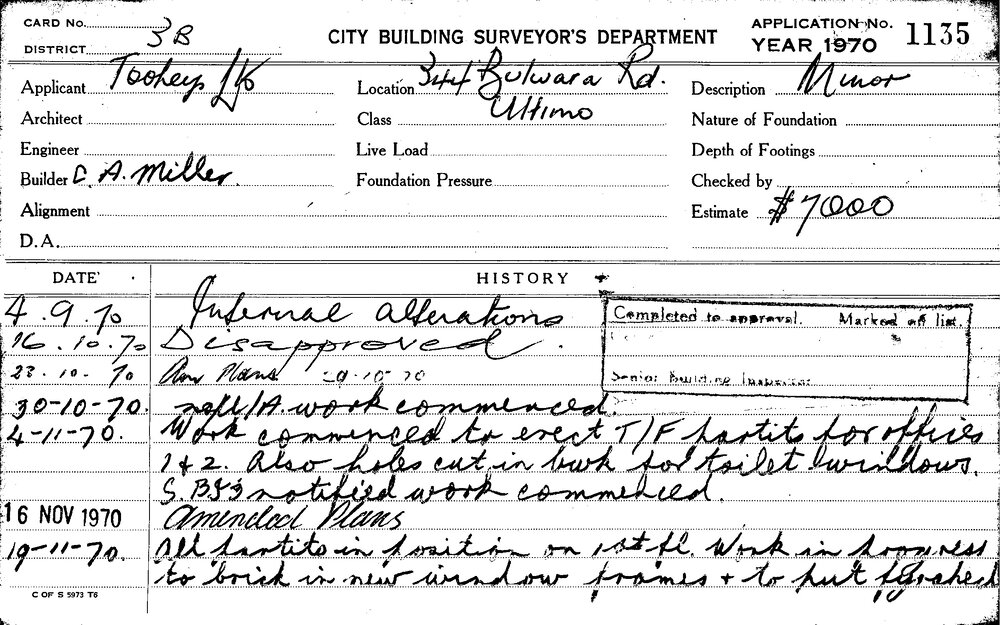 CARD No.
DISTRICT 3B
CITY BUILDING SURVEYOR'S DEPARTMENT
APPLICATION No. 1135
YEAR 1970
Applicant Tooheys Ltd
Location 344 Bulwara Rd.
Ultimo
Description Minor
Architect
Class
Nature of Foundation
Engineer
Live Load
Depth of Footings
Builder C. A. Miller.
Foundation Pressure
Checked by
Alignment
Estimate $7000
D.A.
DATE
HISTORY
4.9.70 Internal alterations
Completed to approval. Marked off list.
Senior Building Inspector
16.10.70 Disapproved.
23.10.70 Am Plans 29.10.70
30-10-70. work commenced.
4-11-70. Work commenced to erect T/F partits for offices
1 & 2. Also holes cut in bwk for toilet windows.
S.B.I's notified work commenced.
16 NOV 1970 Amended Plans
19-11-70. All partits in position on 1st fl. Work in progress
to brick in new window frames + to put
C OF S 5973 T6